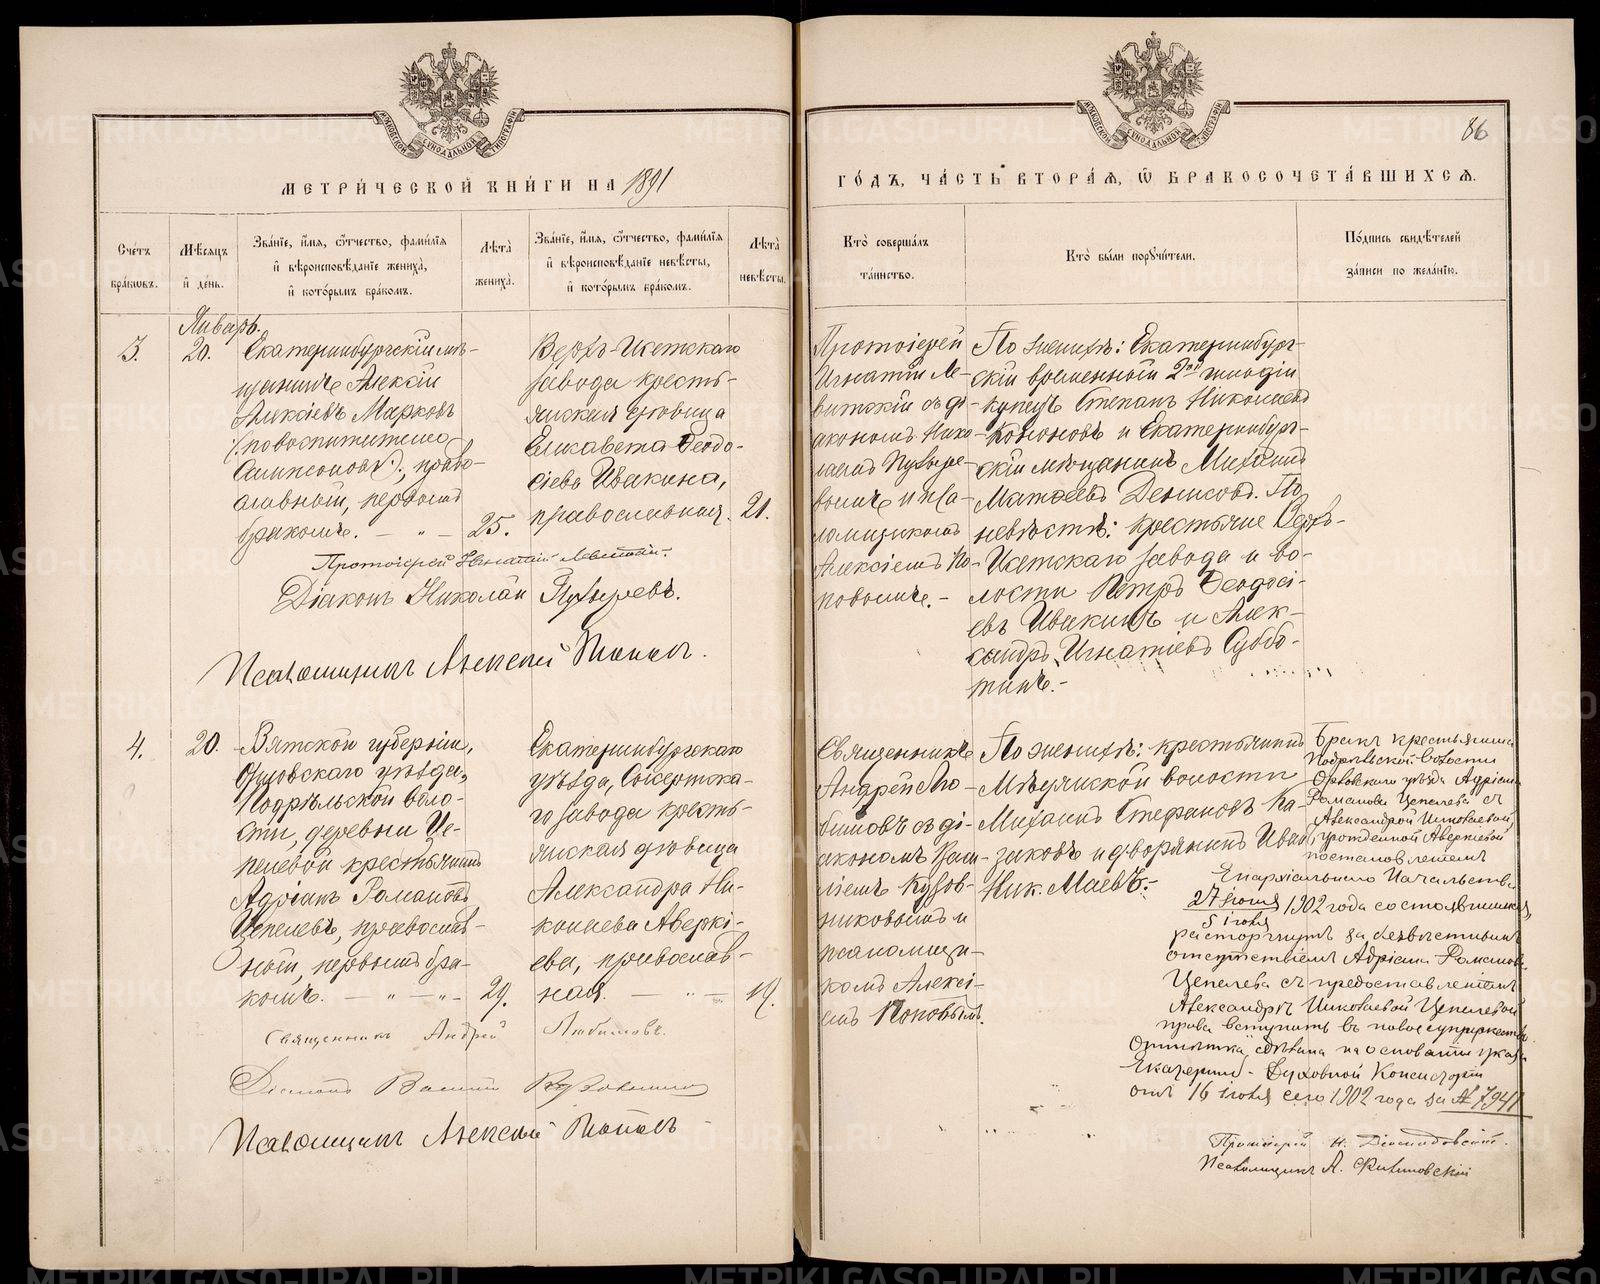 МЕТРИ́ЧЕСКОЙ КНИ́ГИ НА 1891
ГО́ДЪ, ЧА́СТЬ ВТОРА́Я, Ѡ БРАКОСОЧЕТА́ВШИХСЯ.
86
Сче́тъ бра́ковъ.
Мѣ́сяцъ и҆ де́нь.
Зва́нїе, и҆́мя, ѻ҆́тчество, фами́лїя
и҆ вѣроисповѣ́данїе жениха̀,
и҆ кото́рымъ бра́комъ.
Лѣта̀ жениха̀.
Зва́нїе, и҆́мя, ѻ҆́тчество, фами́лїя
и҆ вѣроисповѣ́данїе невѣ́сты,
и҆ кото́рымъ бра́комъ.
Лѣта̀ невѣ́сты.
Кто̀ соверша́лъ
та́инство.
Кто̀ бы́ли порꙋчи́тели.
По́дпись свидѣ́телей
за́писи по жела́нїю.
Январь.
3.
20.
Екатеринбургскій мѣ-
щанинъ Алексій
Алексіевъ Марковъ
(:по воспитателю
Сампсоновъ:), право-
славный, первымъ
бракомъ. — „ —
25.
Верхъ-Исетскаго
завода кресть-
янская дѣвица
Елисавета Ѳеодо-
сіева Ивакина,
православная.
21.
Протоіерей
Игнатій Ле-
витскій съ ді-
акономъ Нико-
лаемъ Пузыре-
вымъ и пса-
ломщикомъ
Алексіемъ По-
повымъ.-
По женихѣ: Екатеринбург-
скій временный 2ой гильдіи
купецъ Стефанъ Николаевъ
Кононовъ и Екатеринбург-
скій мѣщанинъ Михаилъ
Матѳеевъ Денисовъ. По
невѣстѣ: крестьяне Верхъ-
Исетскаго завода и во-
лости Петръ Ѳеодосі-
евъ Ивакинъ и Алек-
сандръ Игнатіевъ Суббо-
тинъ.-
Протоіерей Игнатій Левитскій.
Діаконъ Николай Пузыревъ.
Псаломщикъ Алексей Поповъ.
4.
20.
Вятской губерніи,
Орловскаго уѣзда,
Подрѣльской воло-
сти, деревни Це-
пелевой крестьянинъ
Адріанъ Романовъ
Цепелевъ, православ-
ный, первымъ бра-
комъ. — „ —
29.
Екатеринбургскаго
уѣзда, Сысертска-
го завода кресть-
янская дѣвица
Александра Ни-
колаева Аверкі-
ева, православ-
ная. — „ —
19.
Священникъ
Андрей Лю-
бимовъ съ ді-
акономъ Васи-
ліемъ Кузов-
никовымъ и
псаломщи-
комъ Алексі-
емъ Поповымъ.
По женихѣ: крестьянинъ
Михаилъ Стефановъ Ка-
заковъ и дворянинъ Иванъ
Ник. Маевъ.-
Бракъ крестьянина
Подрѣльской волости
Орловскаго уѣзда Адріана
Романова Цепелева съ
Александрой Николаевой,
урожденной Аверкіевой
постановленіемъ
Епархіальнаго Начальства
27 мая
5 іюня 1902 года состоявшимся,
расторгнутъ за безвѣстнымъ
отсутствіемъ Адріана Романова
Цепелева съ предоставленіемъ
Александрѣ Николаевой Цепелевой
права вступить въ новое супружество.
Отмѣтка сдѣлана на основаніи указа
Екатерин. Духовной Консисторіи
отъ 16 іюня сего 1902 года за № 7941
Протоіерей
Псаломщикъ А.
Священникъ Андрей Любимовъ.
Діаконъ Василій Кузовниковъ
Псаломщикъ Алексей Поповъ
METRIKI.GASO-URAL.RU